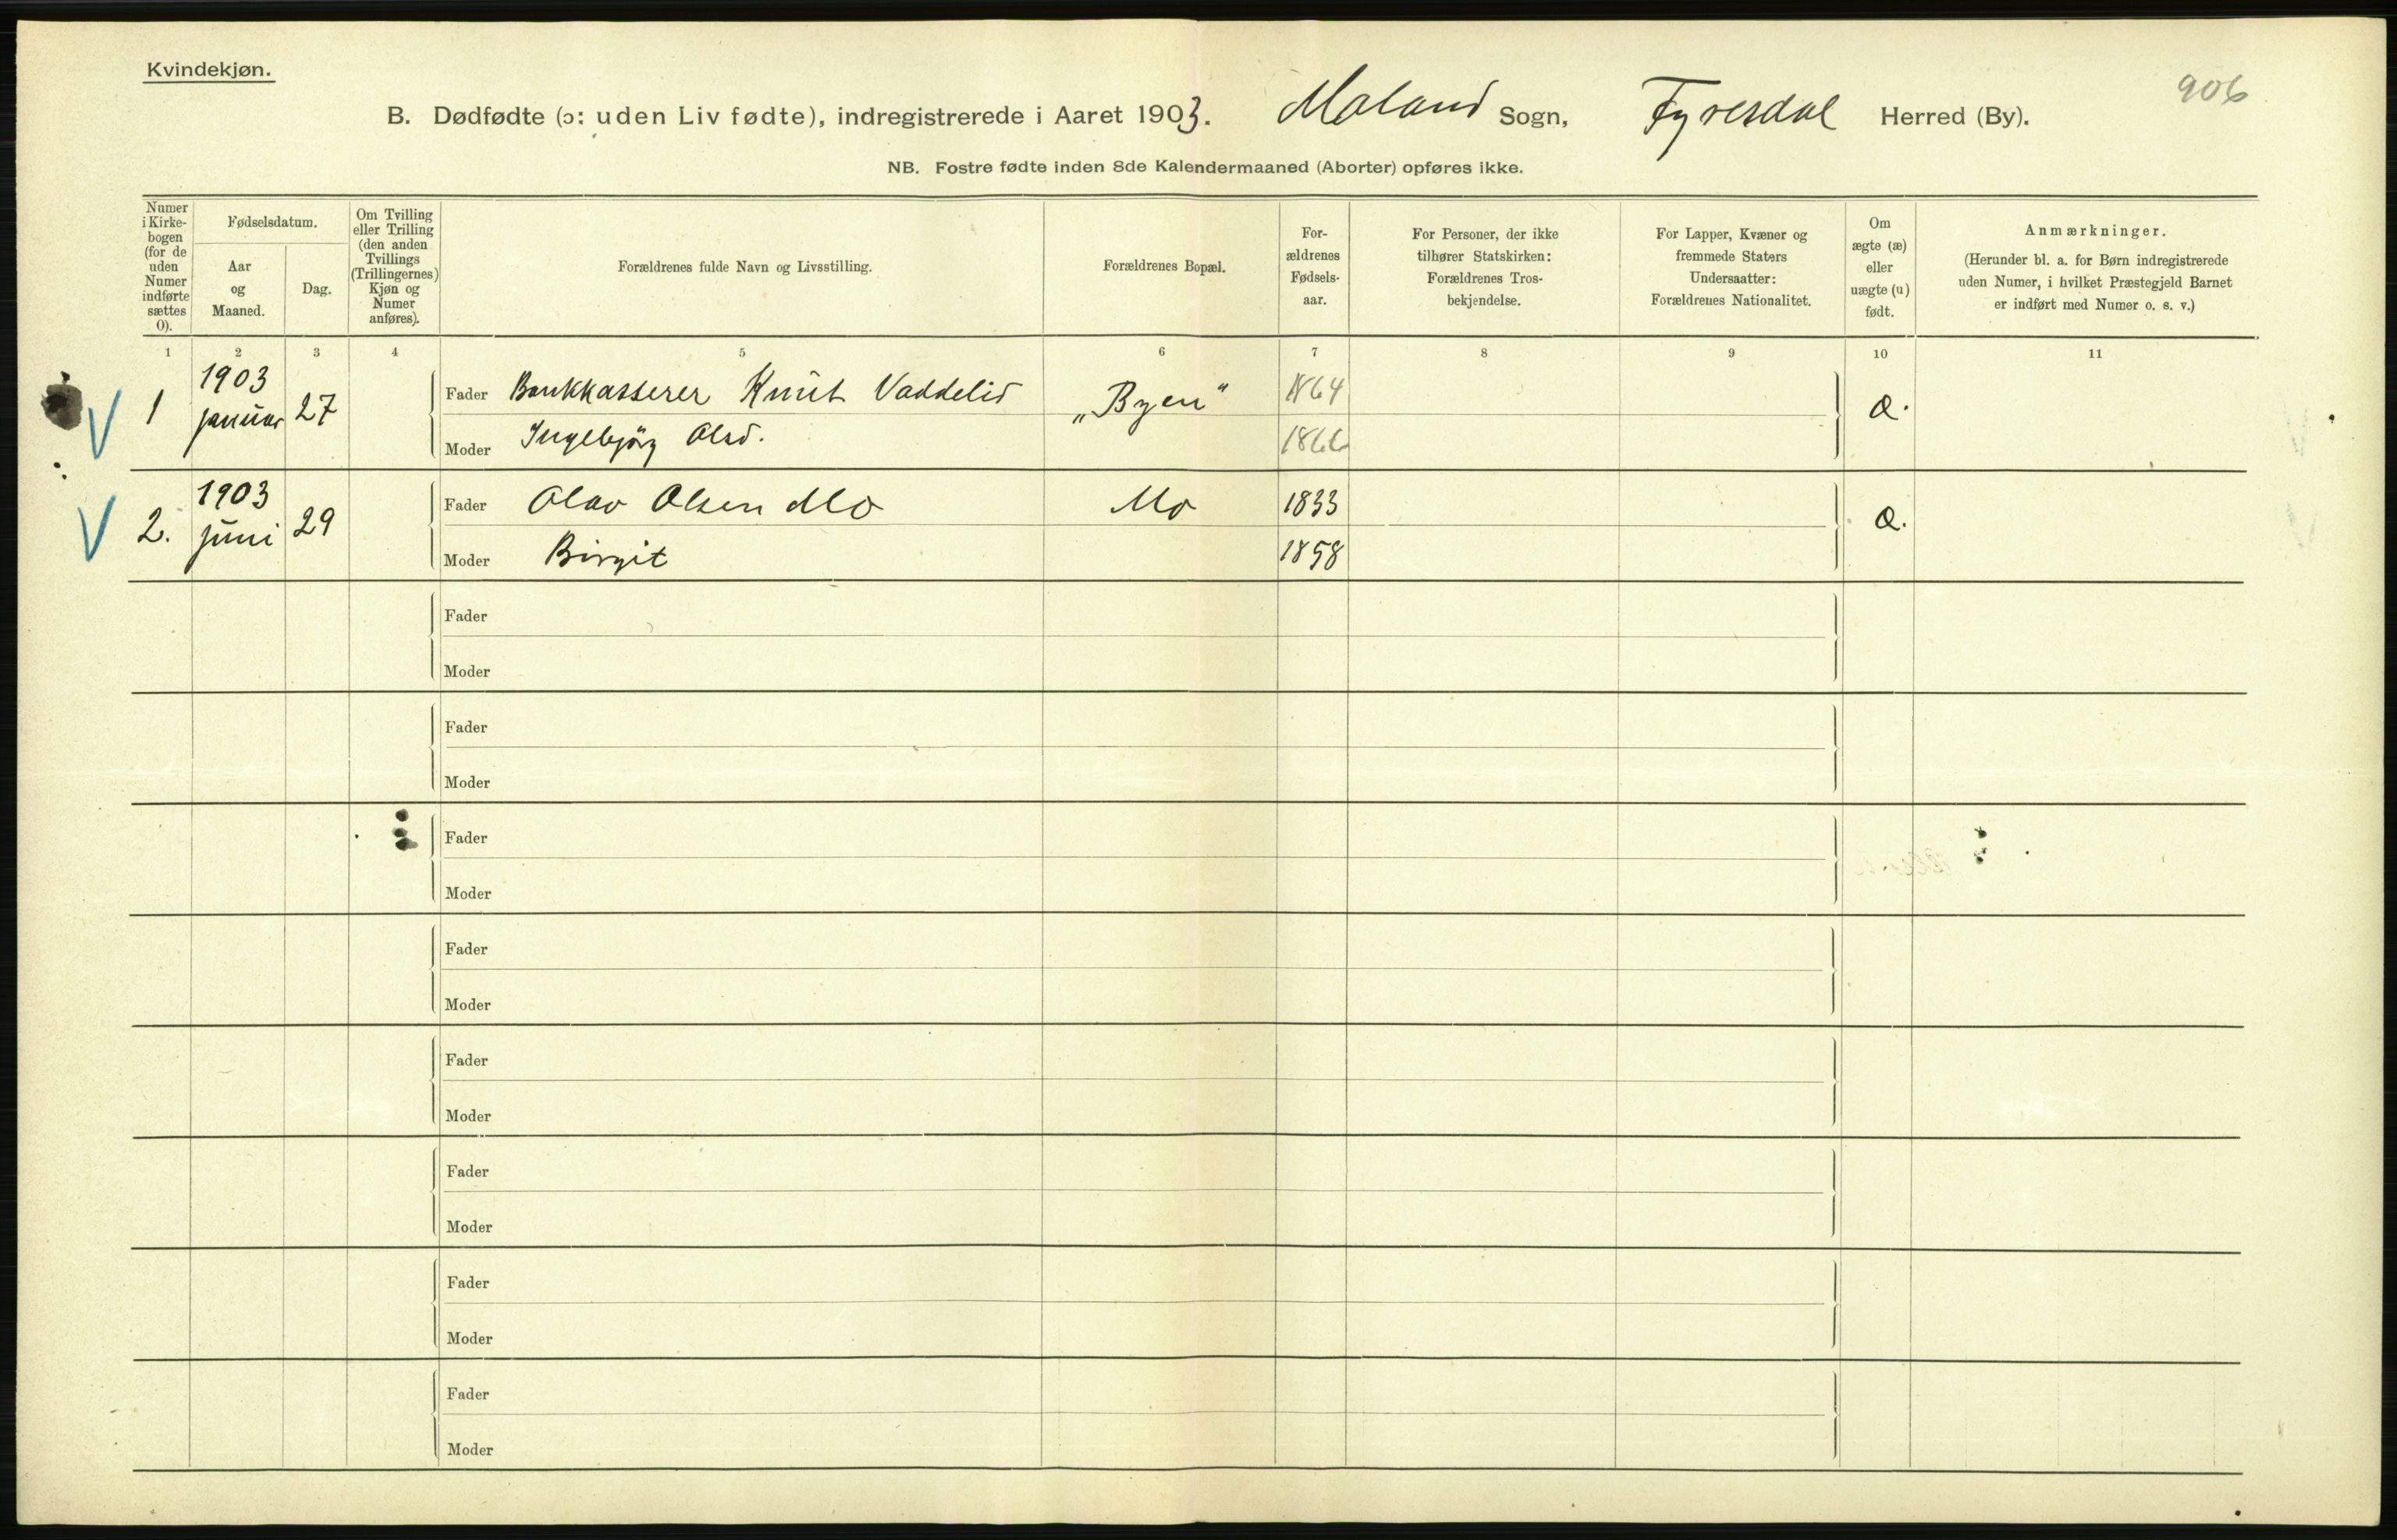 Kvindekjøn.
906
B. Dødfødte (ɔ: uden Liv fødte), indregistrerede i Aaret 1903. Moland Sogn, Fyresdal Herred (By).
NB. Fostre fødte inden 8de Kalendermaaned (Aborter) opføres ikke.
Numer i Kirkebogen (for de uden Numer indførte sættes 0).
Fødselsdatum.
Aar og Maaned.
Dag.
Om Tvilling eller Trilling (den anden Tvillings (Trillingernes) Kjøn og Numer anføres).
Forældrenes fulde Navn og Livsstilling.
Forældrenes Bopæl.
Forældrenes Fødselsaar.
For Personer, der ikke tilhører Statskirken: Forældrenes Trosbekjendelse.
For Lapper, Kvæner og fremmede Staters Undersaatter: Forældrenes Nationalitet.
Om ægte (æ) eller uægte (u) født.
Anmærkninger.
(Herunder bl. a. for Børn indregistrerede uden Numer, i hvilket Præstegjeld Barnet er indført med Numer o. s. v.)
1 2 3 4 5 6 7 8 9 10 11
V 1 1903 januar 27 Fader Bankkasserer Knut Vaddelid „Byen“ 1864 æ.
Moder Ingebjörg Olsd. 1866
V 2. 1903 juni 29 Fader Olav Olsen Mo Mo 1833 æ.
Moder Birgit 1858
Fader
Moder
Fader
Moder
Fader
Moder
Fader
Moder
Fader
Moder
Fader
Moder
Fader
Moder
Fader
Moder